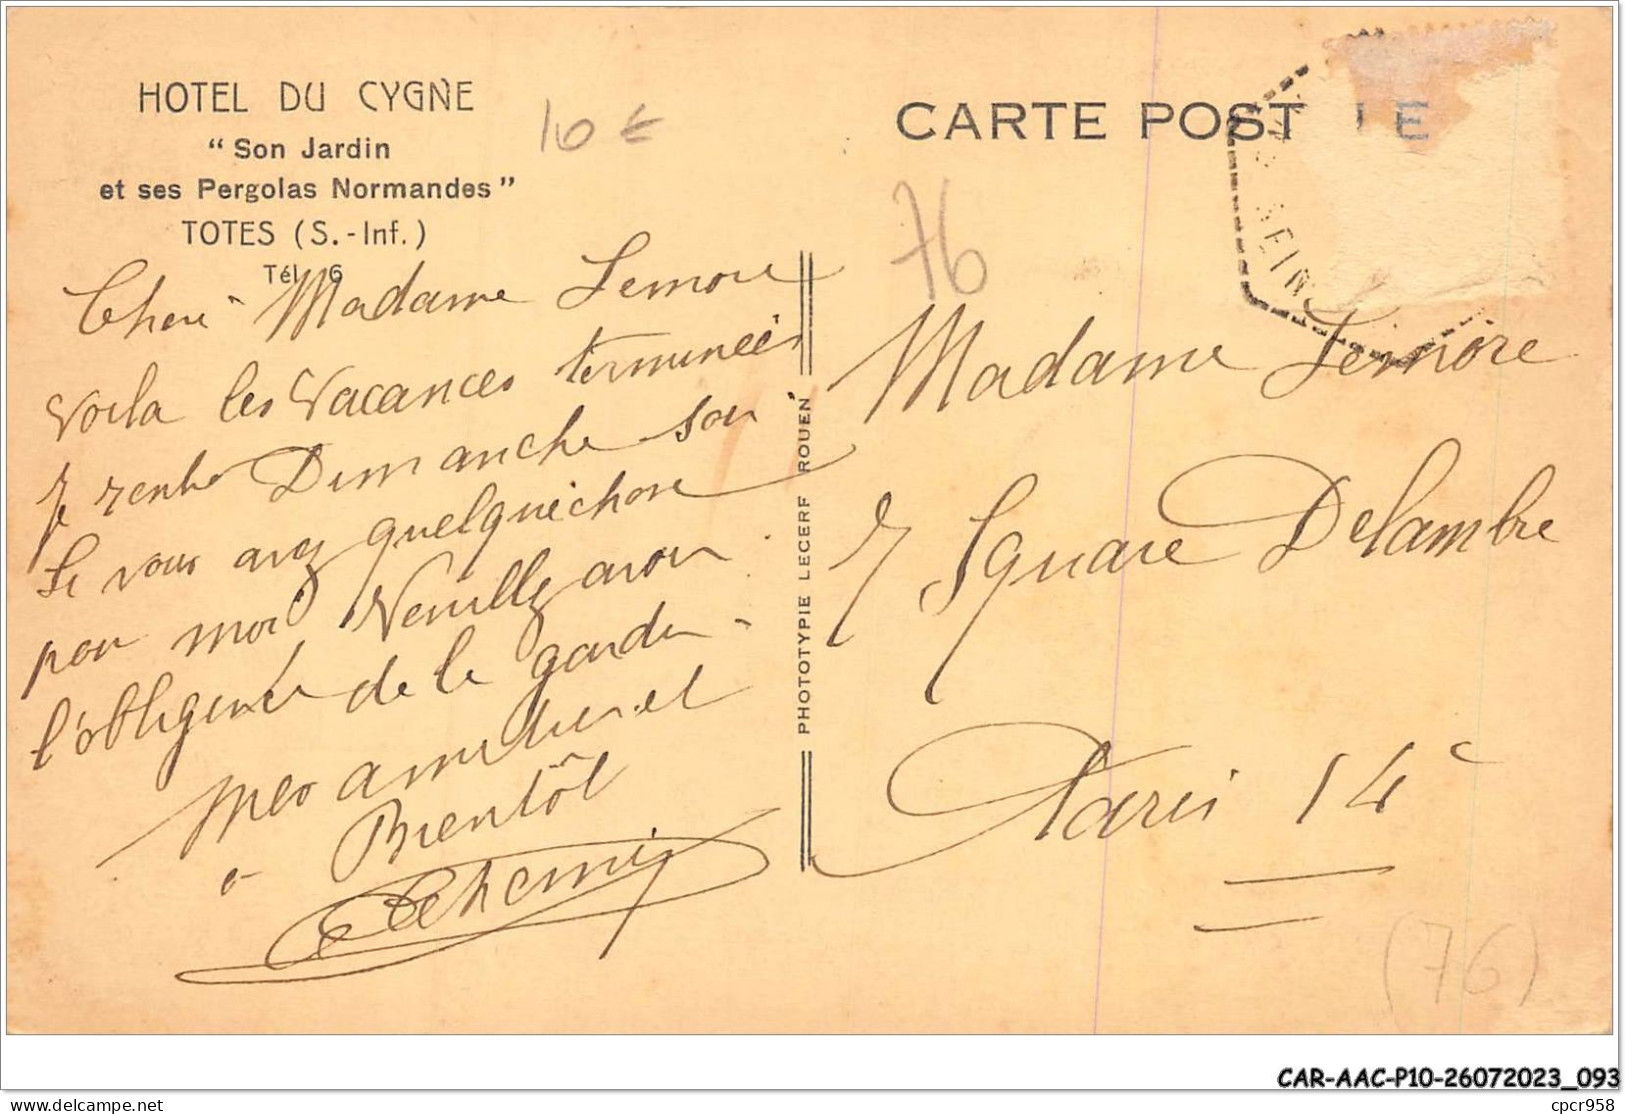 HOTEL DU CYGNE
"Son Jardin
et ses Pergolas Normandes"
TOTES (S.-Inf.)
Tél. 6
10 €
CARTE POST LE
76
SEIN
Cheré Madame Lemore
Voila les Vacances terminées
Je rentre Dimanche soir
Si vous avez quelquechose
pour moi Veuillez avoir
l'obligence de le garder
Mes amities et
a Bientôt
PHOTOTYPIE LECERF ROUEN
Madame Lemore
7 Square Delambre
Paris 14e
(76)
CAR-AAC-P10-26072023_093
delcampe.net
cpcr958